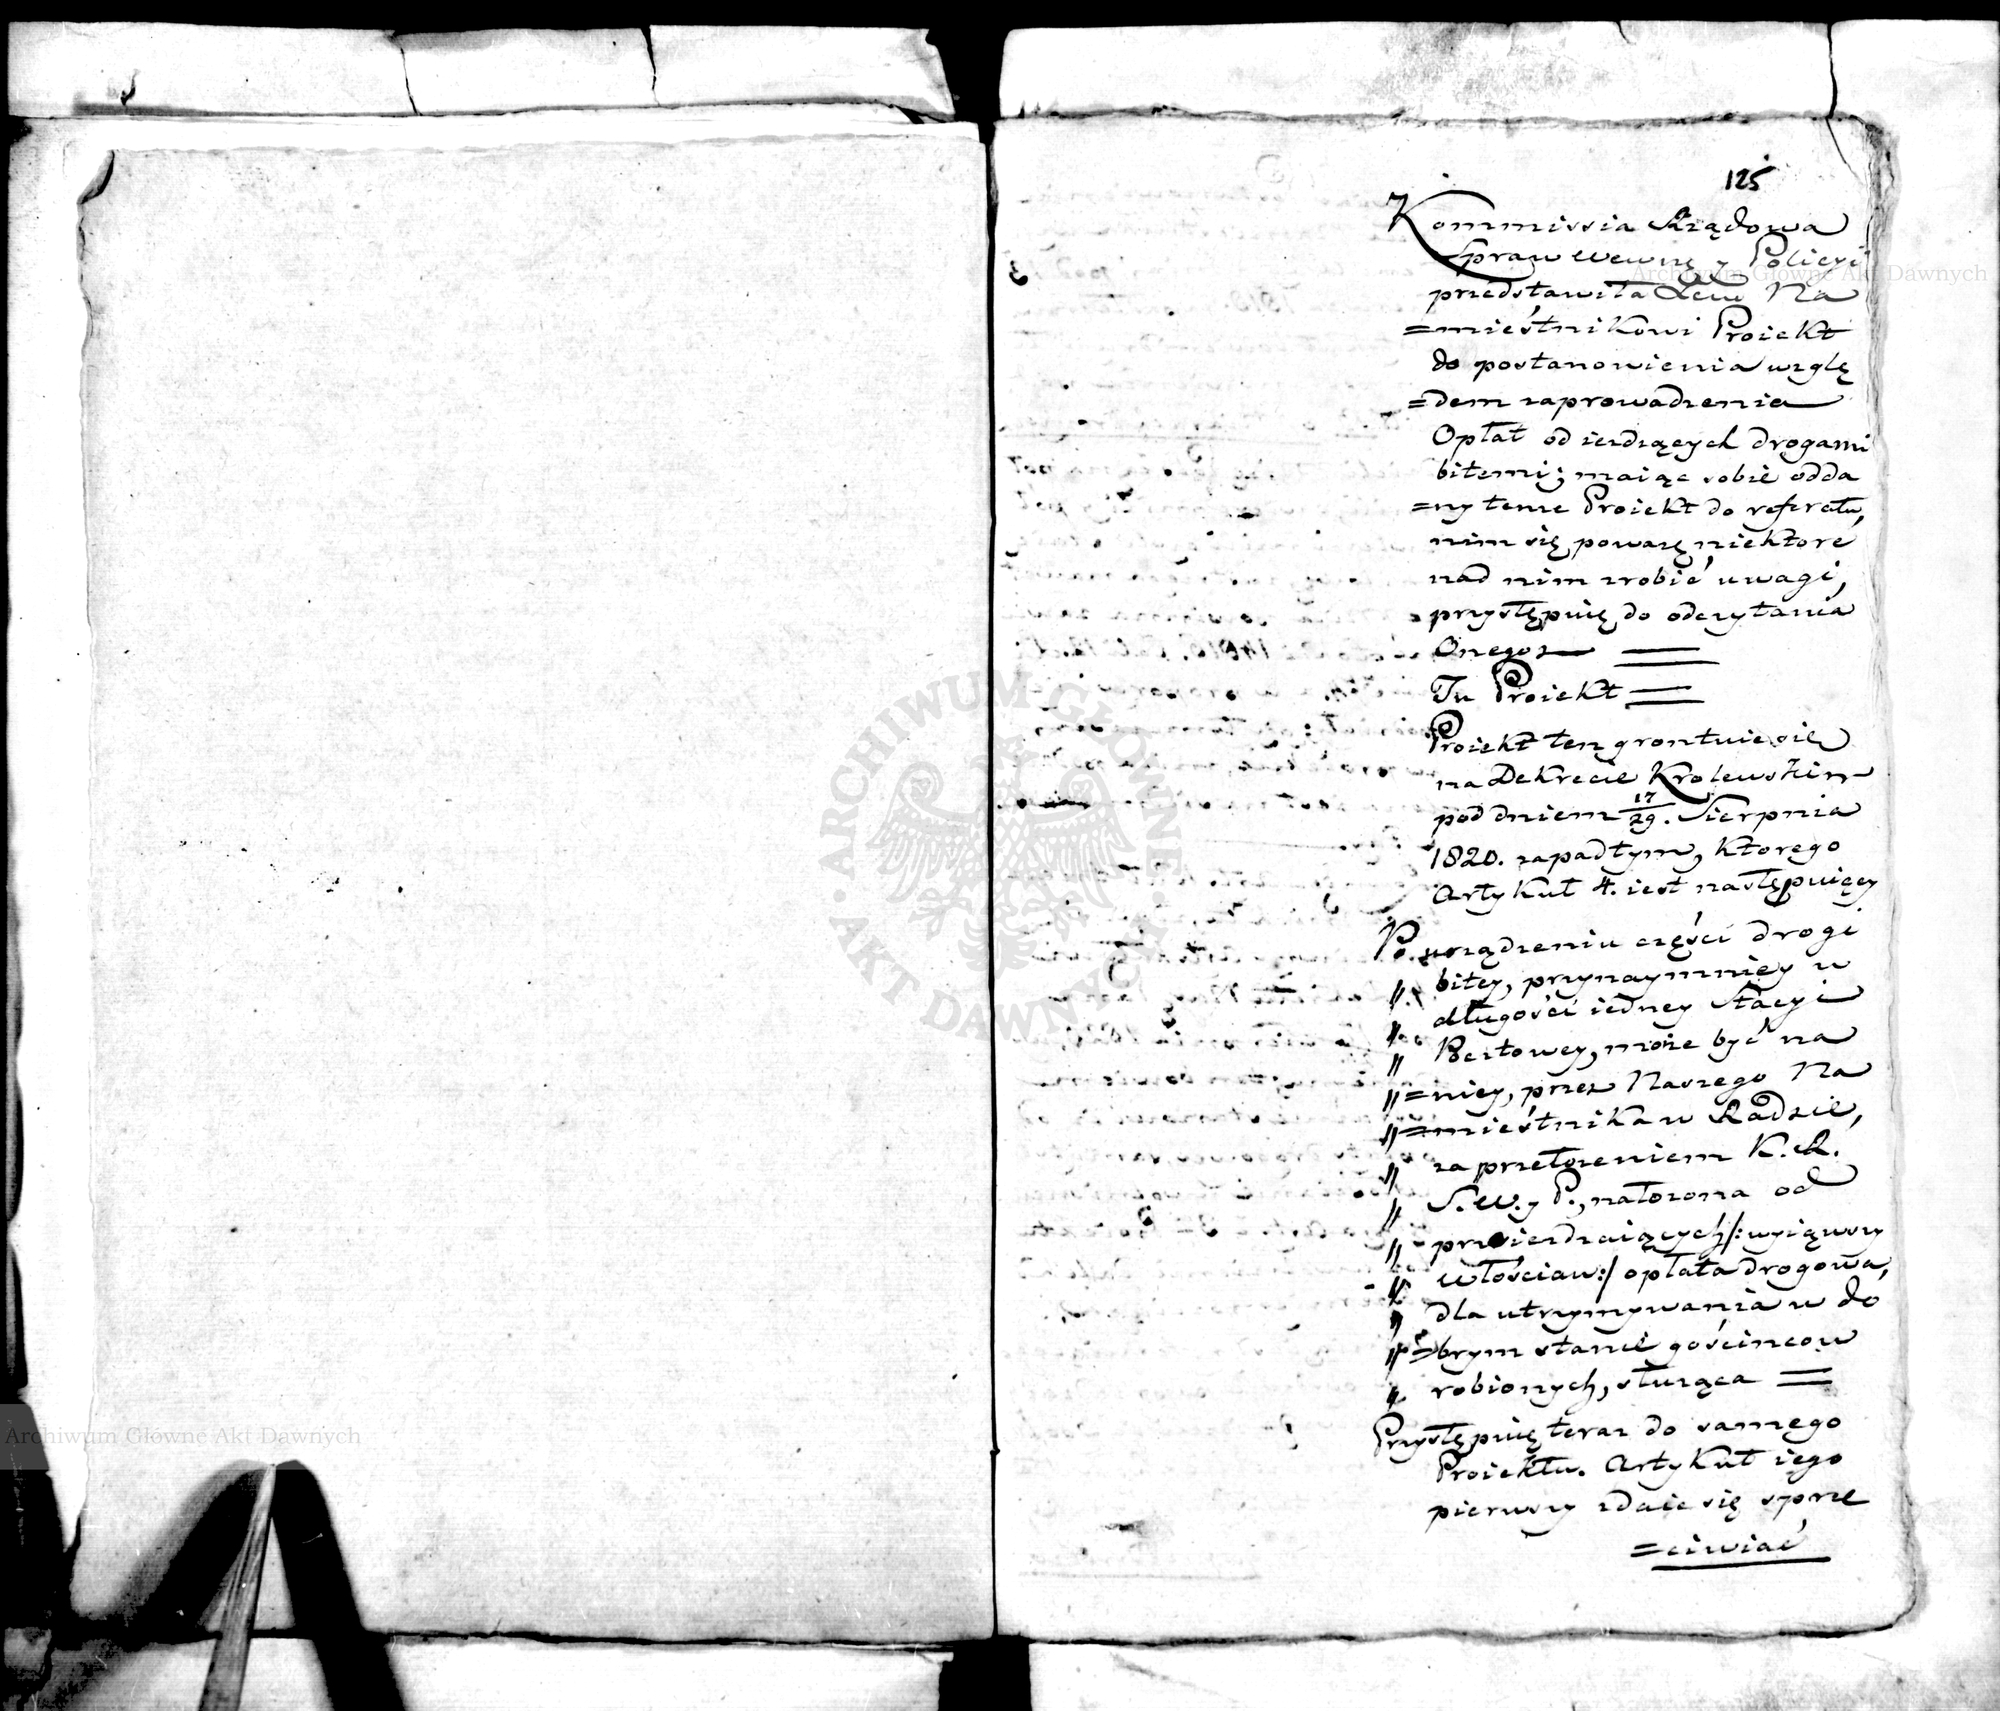 125
Kommissia Rządowa
Spraw Wewnę y Policyi
przedstawiła Xciu Na
=mieśtnikowi Proiekt
do postanowienia wzglę
=dem zaprowadzenia
Opłat od iezdzących drogami
bitemi; maiąc sobie odda
=ny tenże Proiekt do referatu,
nim się poważę niektore
nad nim zrobić uwagi,
przystępuię do odczytania
Onegoż
Tu Proiekt
Proiekt ten gruntuie się
na Dekrecie Krolewskim
pod dniem 17/29. Sierpnia
1820. zapadłym, ktorego
Artykuł 4. iest następuiący
Po urządzeniu części drogi
„ bitey, przynaymniey w
„ długości iedney Stacyi
„ Pocztowey, może być na
„ =niey, przez Naszego Na
„ =mieśtnika w Radzie,
„ za przełożeniem K. R.
„ S. W. y P., nałożona od
„ przeieżdzaiących /: wyiąwszy
„ Włościan :/ opłata drogowa,
„ dla utrzymywania w do
„ =brym stanie gościncow
„ robionych, służąca
Przystępuię teraz do samego
Proiektu. Artykuł iego
pierwszy zdaie się sprze
=ciwiać
Archiwum Główne Akt Dawnych
ARCHIWUM GŁÓWNE · AKT DAWNYCH ·
Archiwum Główne Akt Dawnych